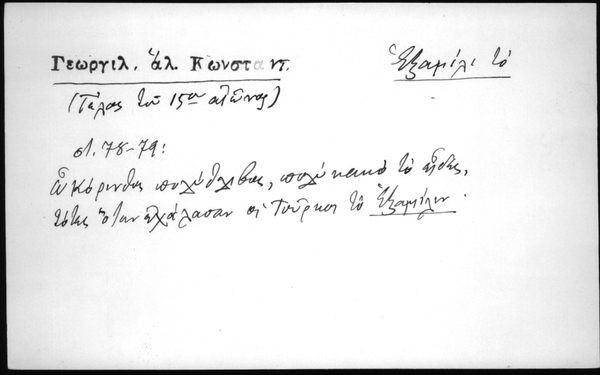 Γεωργιλ. ἅλ. Κωνσταντ.
Ἑξαμίλι τὸ
(Τέλος τοῦ 15ου αἰῶνος)
στ. 78-79:
ὦ Κόρινθος πολύθλιβος, πολὺ κακὸ τὸ εἶδες,
τότες ὅταν ἐχάλασαν οἱ Τοῦρκοι τὸ Ἑξαμίλιν.